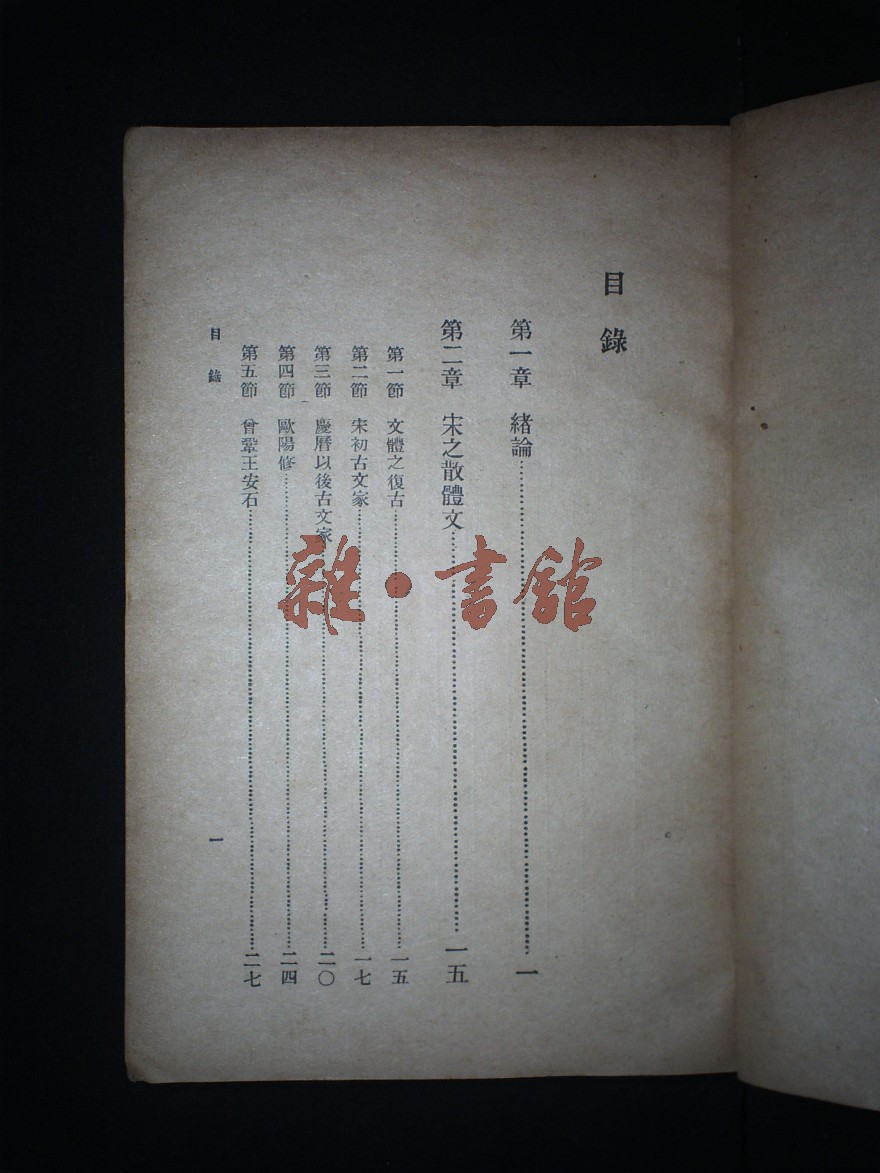 目錄
第一章 緒論……一
第二章 宋之散體文……一五
第一節 文體之復古……一五
第二節 宋初古文家……一七
第三節 慶曆以後古文家……二〇
第四節 歐陽修……二四
第五節 曾鞏王安石……二七
目錄 一
雜·書館